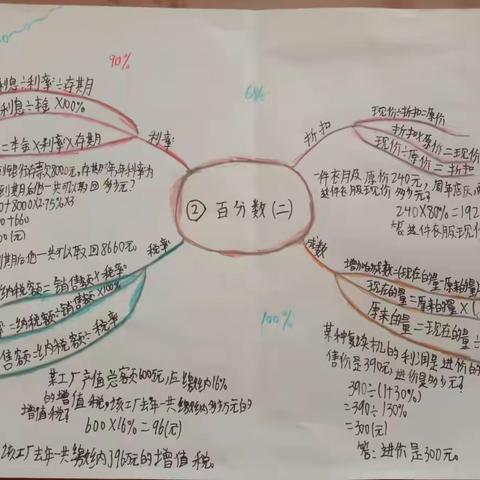 90%
68%
100%
② 百分数(二)
利率
利息÷利率÷存期
利息÷本金×100%
=本金×利率×存期
银行存款8000元,存期
年利率为
到期后他一共可以取回多少元?
+8000×2.75%×3
+660
(元)
期后他一共可以取回8660元。
折扣
现价÷折扣=原价
折扣×原价=现价
现价÷原价=折
件衣服原价240元,周年店庆
这件衣服现价多少元?
240×80%=192
答:这件衣服现价
税率
纳税额=销售额×税率
=纳税额÷销售额×100%
售额=纳税额÷税率
某工厂产值总额600万元,应缴纳16%
的增值税,该工厂去年一共缴纳多少万元的
增值税?
600×16%=96(元)
该工厂去年一共缴纳96万元的增值税。
成数
增加的成数=(现在的量-原来的量)
现在的量=原来的量×(
原来的量=现在的量÷
某种复读机的利润是进价的
售价是390元,进价是多少元?
390÷(1+30%)
=390÷130%
=300(元)
答:进价是300元。